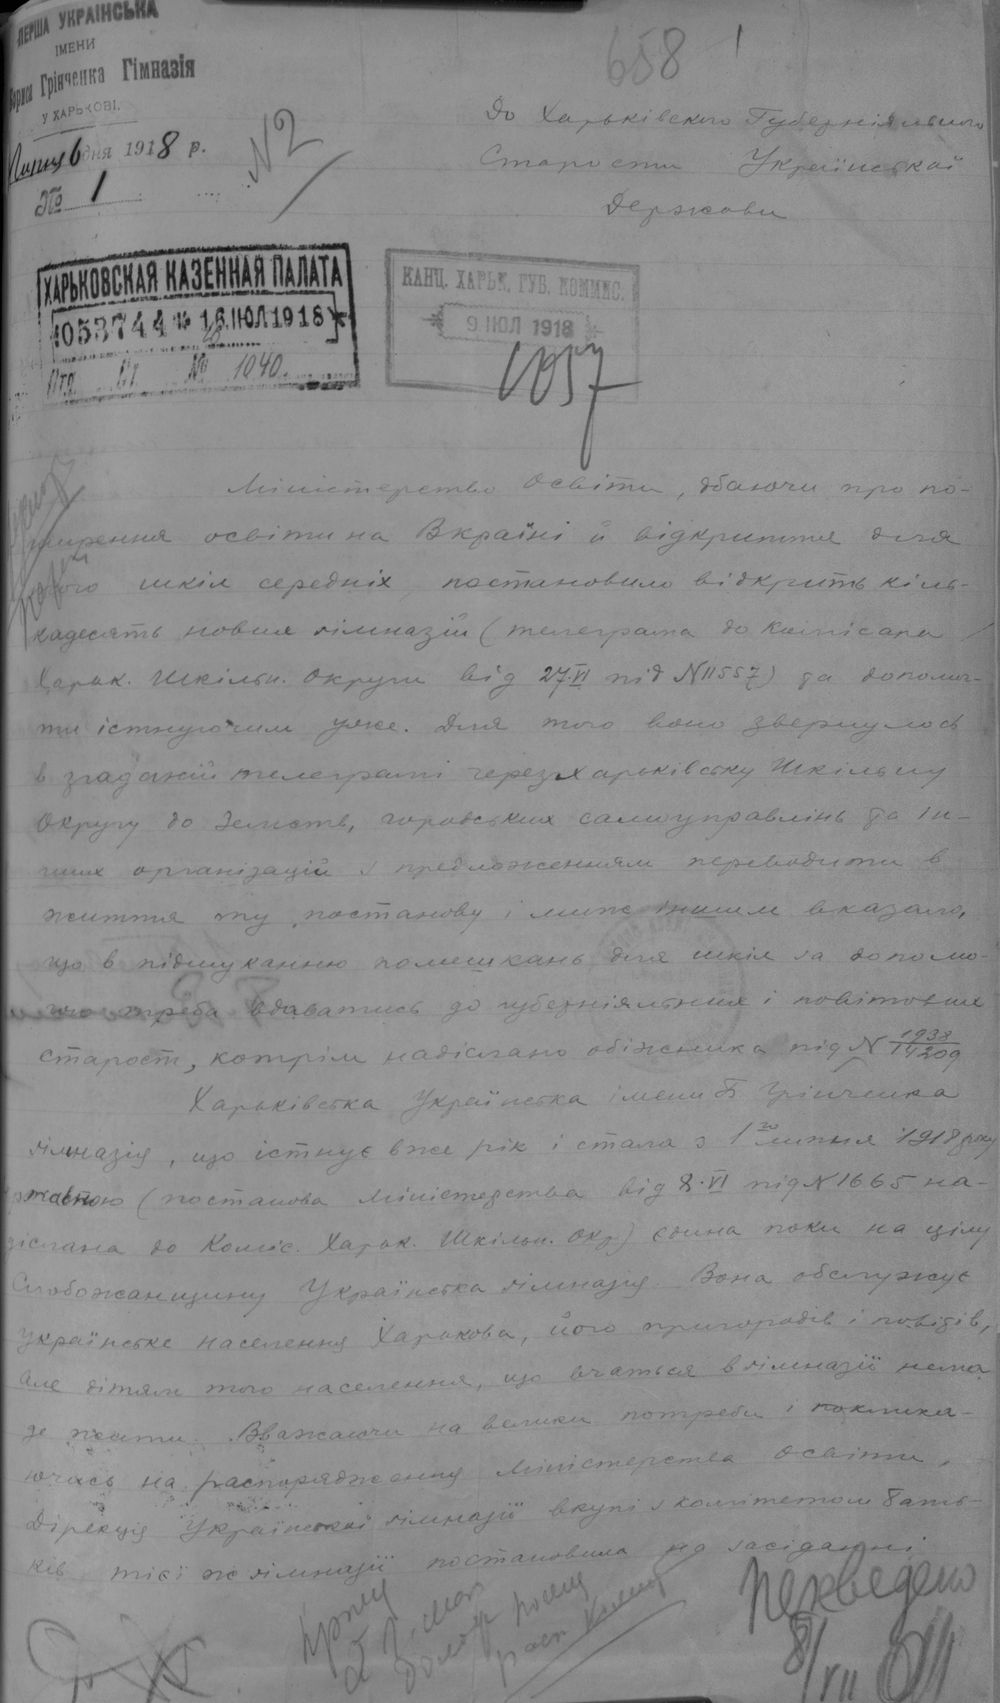 ПЕРША УКРАЇНСЬКА
ІМЕНИ
Бориса Грінченка Гімназія
У ХАРЬКОВІ.
Липця 6 дня 1918 р.
№ 1
N 2
658 1
До Харьківского Губерніяльного
Старости Української
Держави
ХАРЬКОВСКАЯ КАЗЕННАЯ ПАЛАТА
053744 * 16.ІЮЛ1918
Отд. Ст. № 1040.
КАНЦ. ХАРЬК. ГУБ. КОММИС.
9 ІЮЛ 1918
1057
Міністерство Освіти, дбаючи про по-
ширення освіти на Вкраїні й відкриття для
того шкіл середніх, постановило відкрить кіль-
кадесять нових гімназій (телеграма до Комісара
Харьк. Шкільн. Округи від 27.VI під N11557) та допомог-
ти існуючим уже. Для того воно звернулось
в згаданій телеграмі через Харьківську Шкільну
Округу до Земств, городських самоуправлінь та ін-
ших організацій з предложенням переводити в
життя ту постанову і між іншим вказало,
що в підшуканню помешкань для шкіл за допомо-
гою треба вдаватись до губерніяльних і повітових
старост, котрім надіслано обіжника під N 1938/14209
Харьківська Українська імени Б Грінченка
гімназія, що істнує вже рік і стала з 1го липня 1918 року
державною (постанова Міністерства від 8.VI під N1665 на-
діслана до Коміс. Харьк. Шкільн. Окр.) єдина поки на цілу
Слобожанщину Українська гімназія. Вона обслужує
українське населення Харькова, його пригородів і повітів,
але дітям того населення, що вчаться в гімназії нема
де жити. Вважаючи на велики потреби і поклика-
ючись на распорядження Міністерства Освіти,
Дірекція Української гімназії вкупі з комітетом бать-
ків тієї ж гімназії постановила на засіданні
Переведено
8/VII